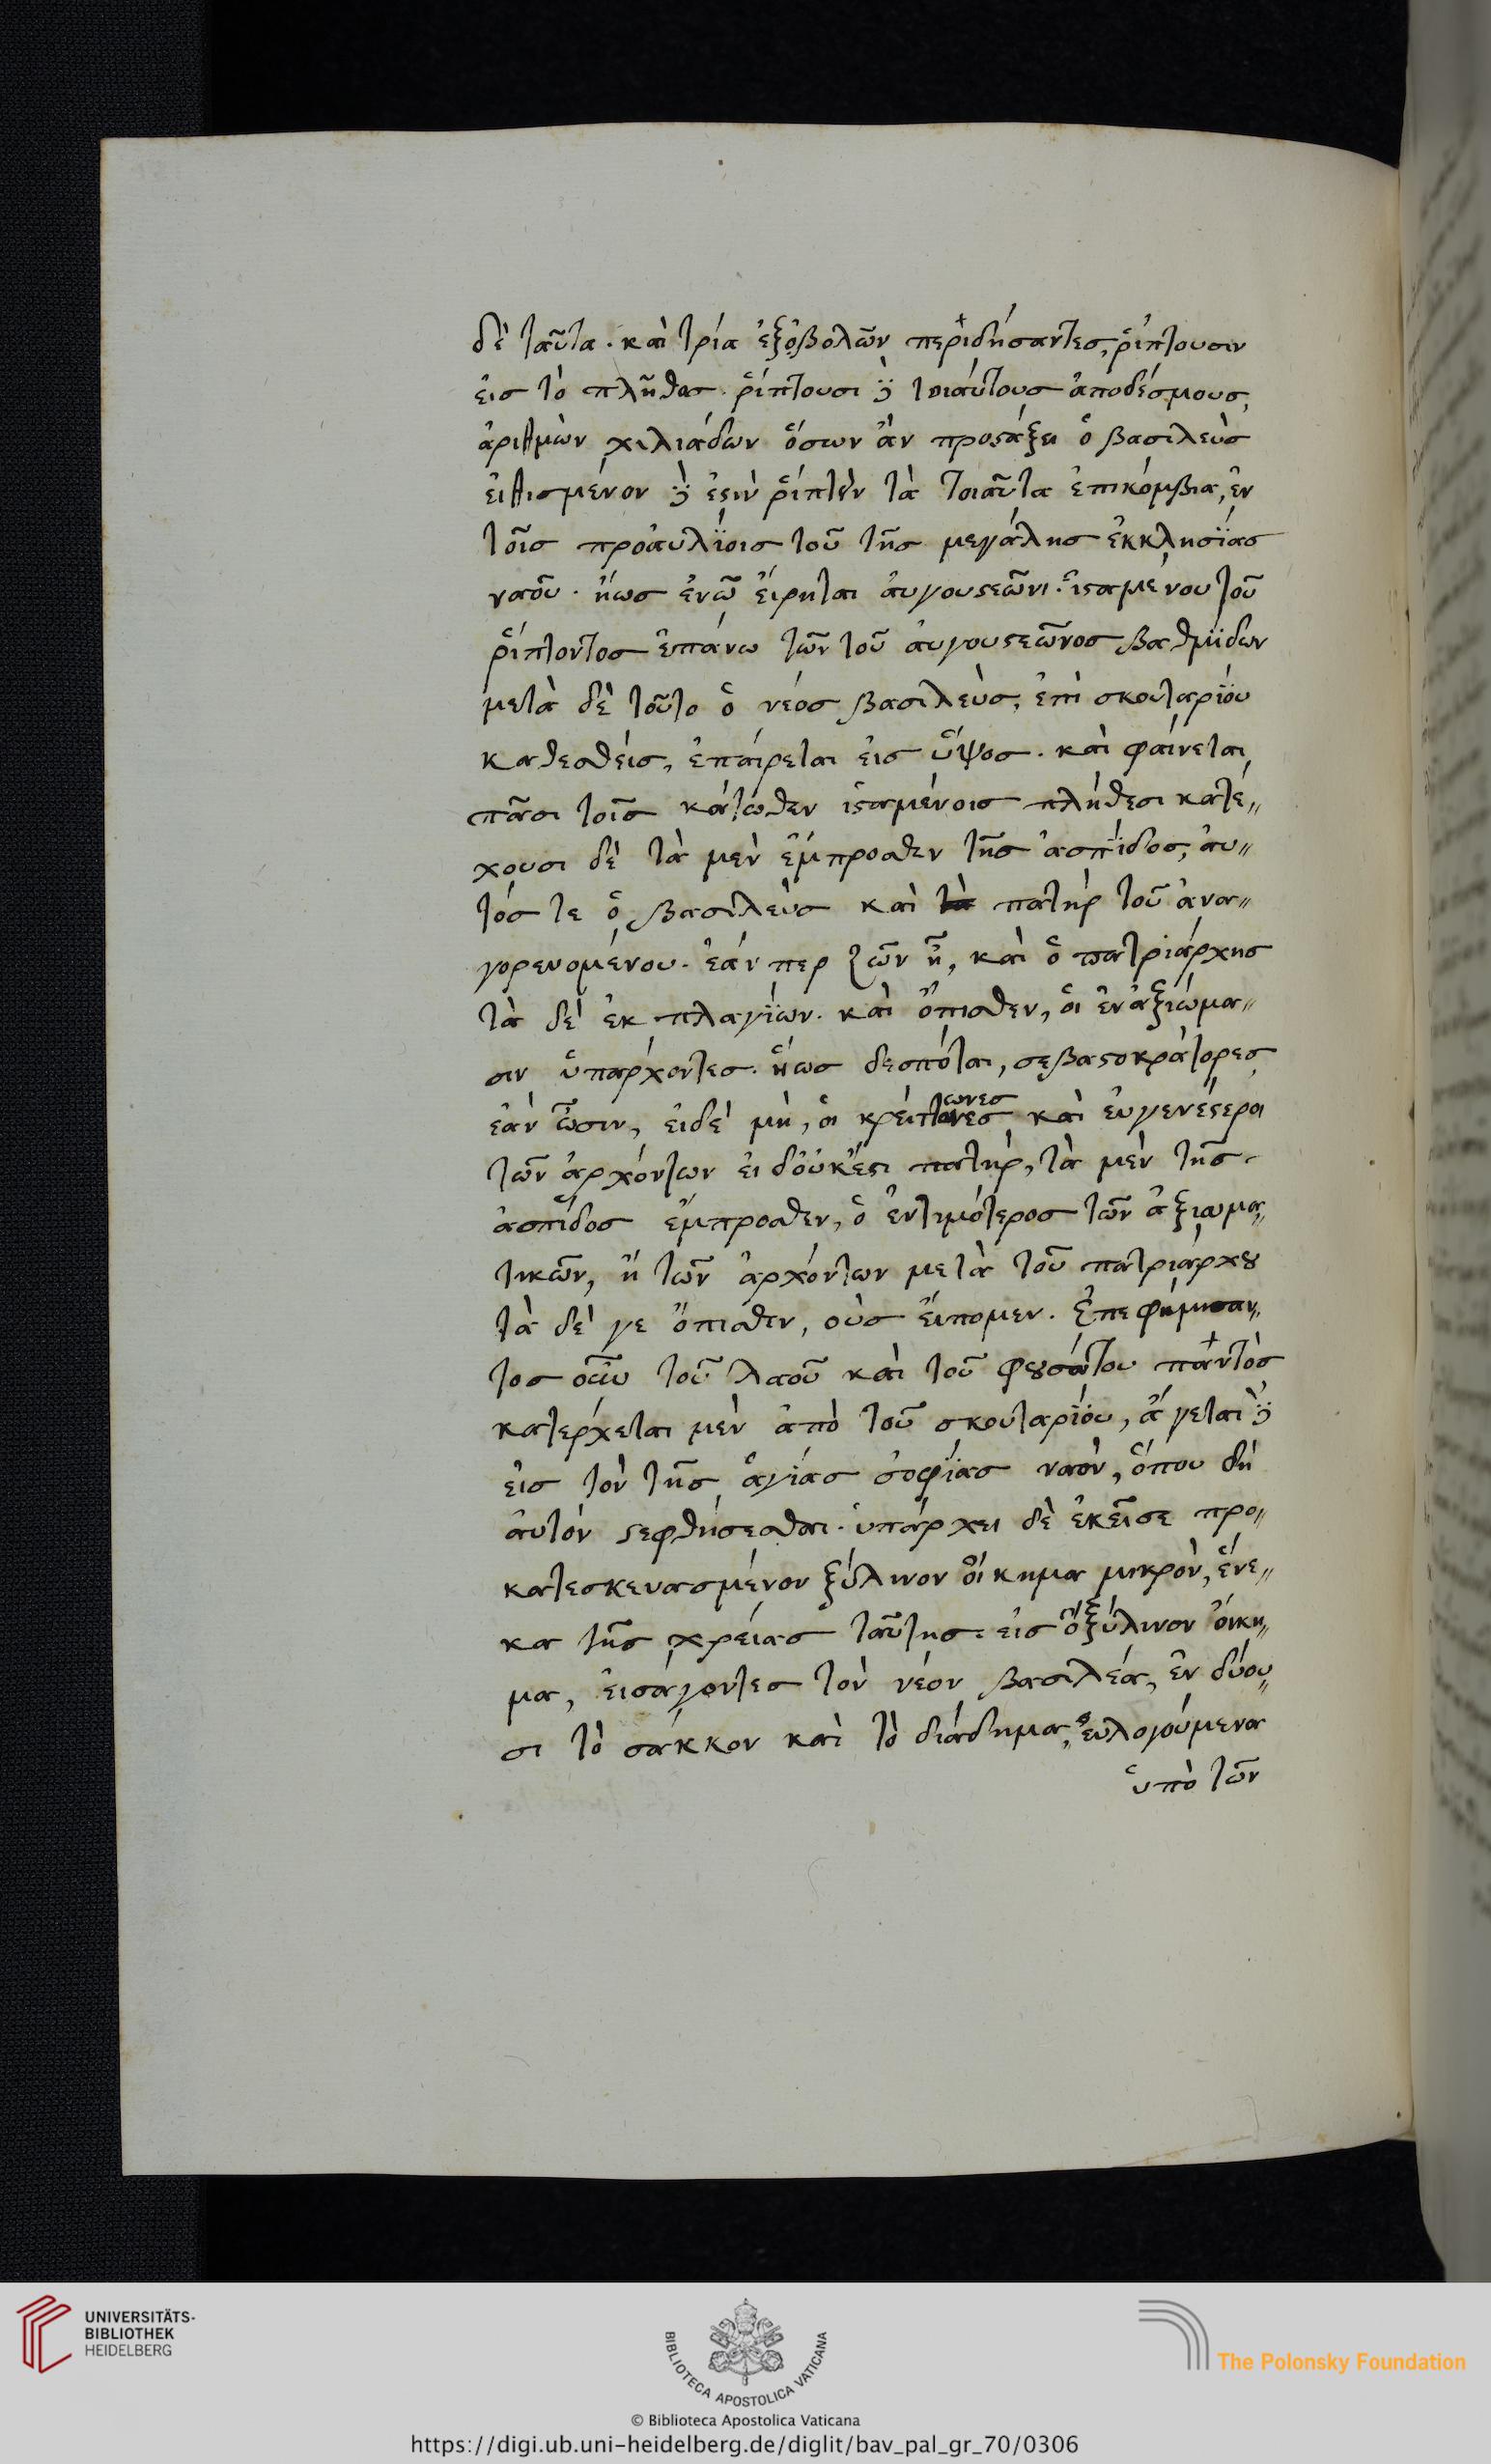 δὲ ταῦτα. καὶ τρία ἐξοβολῶν περιδήσαντες, ῥίπτουσιν
εἰς τὸ πλῆθος. ῥίπτουσι δὲ τοιαύτους ἀποδέσμους,
ἀριθμὸν χιλιάδων ὅσων ἂν προστάξει ὁ βασιλεὺς
εἰθισμένον δὲ ἐστὶν ῥίπτειν τὰ τοιαῦτα ἐπικόμβια, ἐν
τοῖς προαυλίοις τοῦ τῆς μεγάλης ἐκκλησίας
ναοῦ. ἤως ἐνῶ εἴρηται αὐγουστεῶνι. ἱσταμένου τοῦ
ῥίπτοντος ἐπάνω τῶν τοῦ αὐγουστεῶνος βαθμίδων
μετὰ δὲ τοῦτο ὁ νέος βασιλεὺς, ἐπὶ σκουταρίου
καθεσθεὶς, ἐπαίρεται εἰς ὕψος. καὶ φαίνεται
πᾶσι τοῖς κάτωθεν ἱσταμένοις πλήθεσι κατέ〃
χουσι δὲ τὰ μὲν ἔμπροσθεν τῆς ἀσπίδος, αὐ〃
τός τε ὁ βασιλεὺς καὶ τὰ πατὴρ τοῦ ἀνα〃
γορευομένου. ἐάν περ ζῶν ἦ, καὶ ὁ πατριάρχης
τὰ δὲ ἐκ πλαγίων. καὶ ὄπισθεν, οἱ ἐν ἀξιώμα〃
σιν ὑπάρχοντες. ἤως δεσπόται, σεβαστοκράτορες
ἐὰν ὦσιν, εἰδὲ μὴ, οἱ κρείττονες ωνες καὶ εὐγενέστεροι
τῶν ἀρχόντων εἰ δ' οὐκ ἔστι πατὴρ, τὰ μὲν τῆς
ἀσπίδος ἔμπροσθεν, ὁ ἐντιμότερος τῶν ἀξιωμα〃
τικῶν, ἢ τῶν ἀρχόντων μετὰ τοῦ πατριάρχου
τὰ δέ γε ὄπισθεν, οὓς εἴπομεν. Ἐπεφήμισαν〃
τος οὖν τοῦ λαοῦ καὶ τοῦ φουσάτου παντὸς
κατέρχεται μὲν ἀπὸ τοῦ σκουταρίου, ἄγεται δὲ
εἰς τὸν τῆς ἁγίας σοφίας ναὸν, ὅπου δὴ
αὐτὸν στεφθήσεσθαι. ὑπάρχει δὲ ἐκεῖσε προ〃
κατεσκευασμένον ξύλινον οἴκημα μικρὸν, ἕνε〃
κα τῆς χρείας ταύτης. εἰς ὃ ξύλινον οἴκη〃
μα, εἰσάγοντες τὸν νέον βασιλέα, ἐν δύου〃
σι τὸ σάκκον καὶ τὸ διάδημα, εὐλογούμενα
ὑπὸ τῶν
UNIVERSITÄTS-
BIBLIOTHEK
HEIDELBERG
BIBLIOTECA APOSTOLICA VATICANA
© Biblioteca Apostolica Vaticana
The Polonsky Foundation
https://digi.ub.uni-heidelberg.de/diglit/bav_pal_gr_70/0306